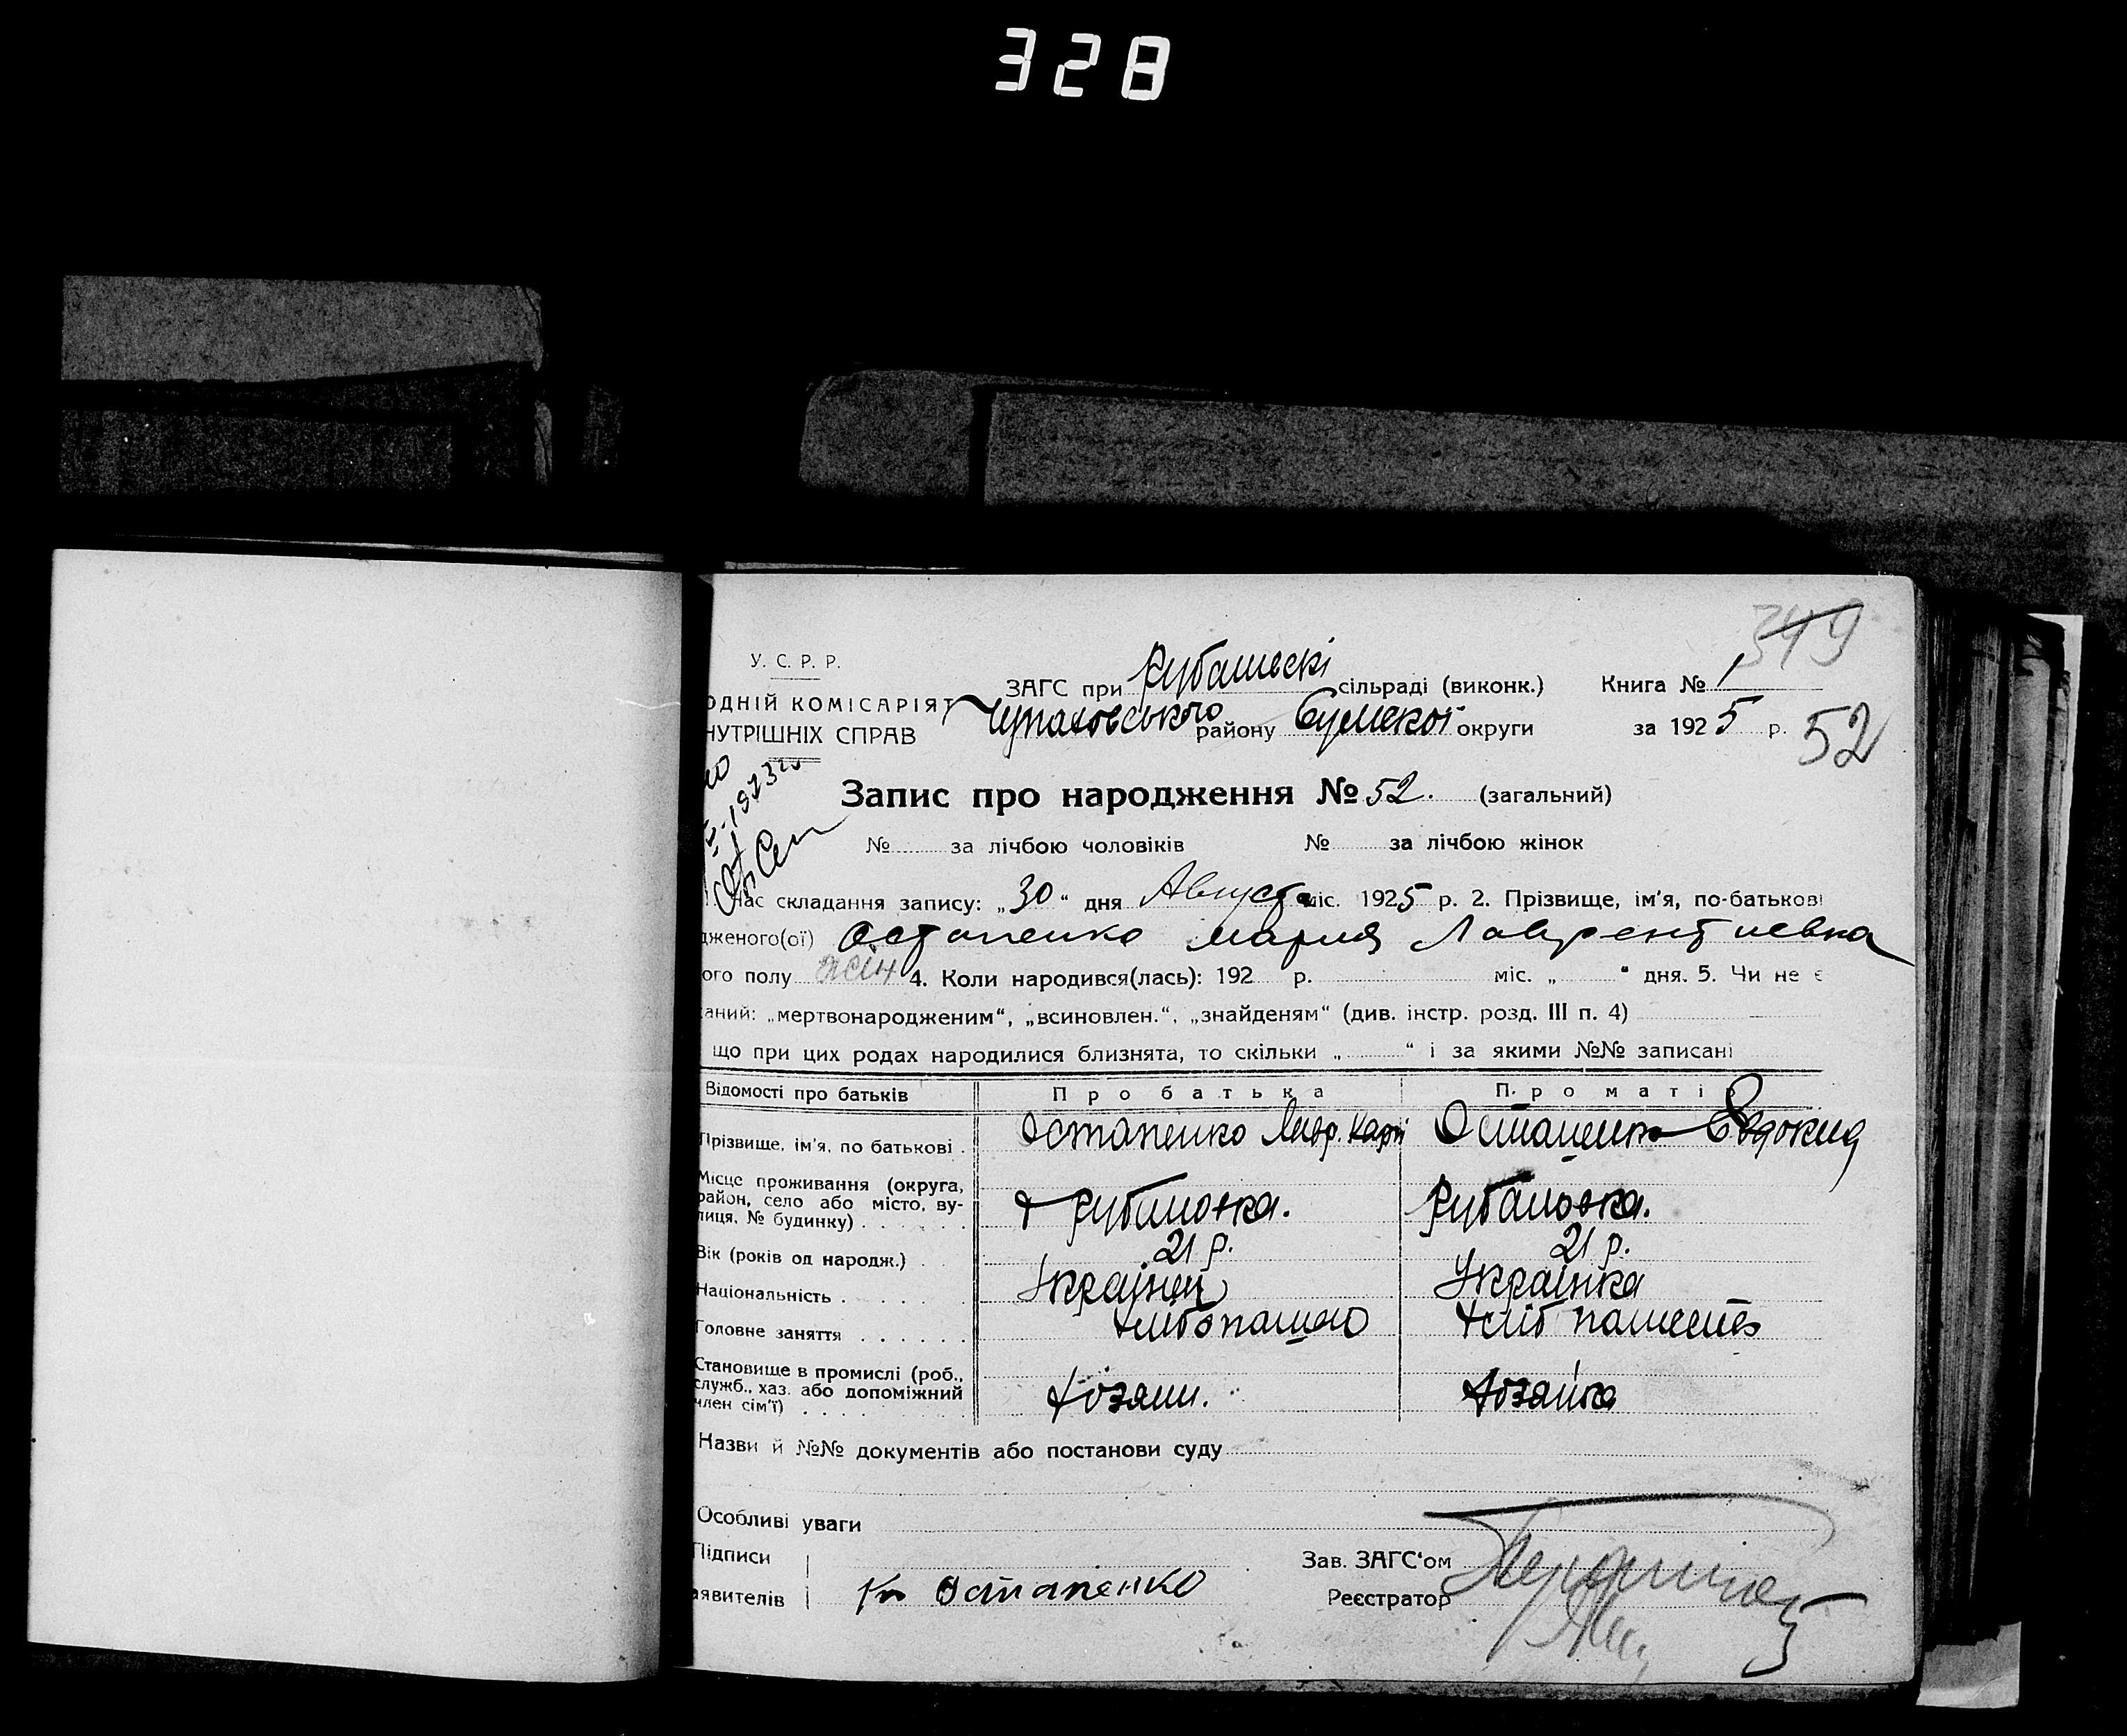 328
349
У. С. Р. Р.
ОДНІЙ КОМІСАРІЯТ
НУТРІШНІХ СПРАВ
ЗАГС при сільраді (виконк.)
Чупаховського району Сумської округи
Книга № 1
за 1925 р.
52
Запис про народження № 52. (загальний)
№ за лічбою чоловіків № за лічбою жінок
час складання запису: „30“ дня Августа міс. 1925 р. 2. Прізвище, ім'я, по-батькові
дженого(ої) Остапенко Мария Лаврентиевна
ого полу жін 4. Коли народився(лась): 192 р. міс. „ “ дня. 5. Чи не є
каний: „мертвонародженим“, „всиновлен.“, „знайденям“ (див. інстр. розд. III п. 4)
що при цих родах народилися близнята, то скільки „ “ і за якими №№ записані
Відомості про батьків Про батька Про матір
Прізвище, ім'я, по батькові . Остапенко Лавр. Остапенко Евдокия
Місце проживання (округа,
район, село або місто, ву-
лиця, № будинку) . . . . . . х Рубановка. Рубановка.
Вік (років од народж.) . . 21 р. 21 р.
Національність . . . . . Українец Українка
Головне заняття . . . . . . хлібопаш хліб
Становище в промислі (роб.,
служб., хаз. або допоміжний
член сім'ї) . . . . . . хозяин. хозяйка
Назви й №№ документів або постанови суду
Особливі уваги
Підписи
аявителів Остапенко
Зав. ЗАГС'ом
Реєстратор